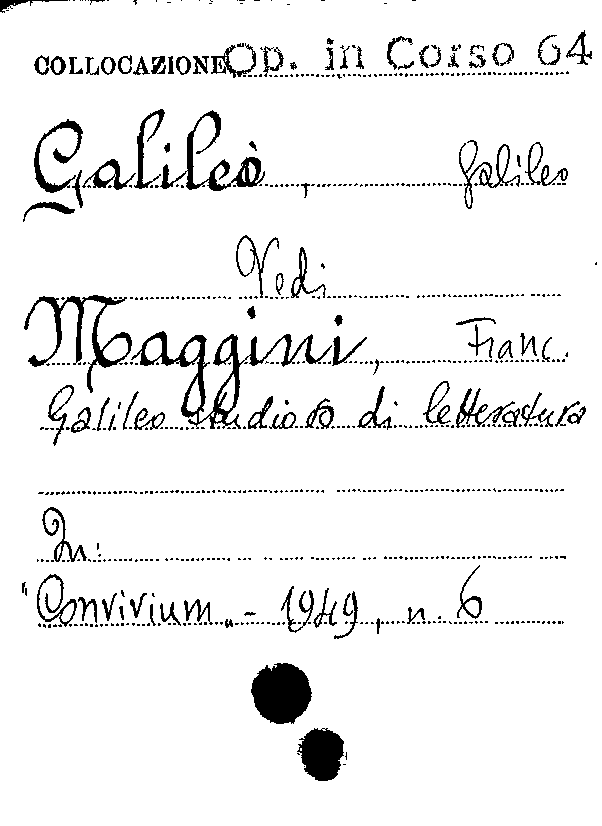 COLLOCAZIONE Op. in Corso 64
Galileò, Galileo
Vedi
Maggini, Franc.
Galileo studioso di letteratura
In:
"Convivium„ - 1949, n. 6